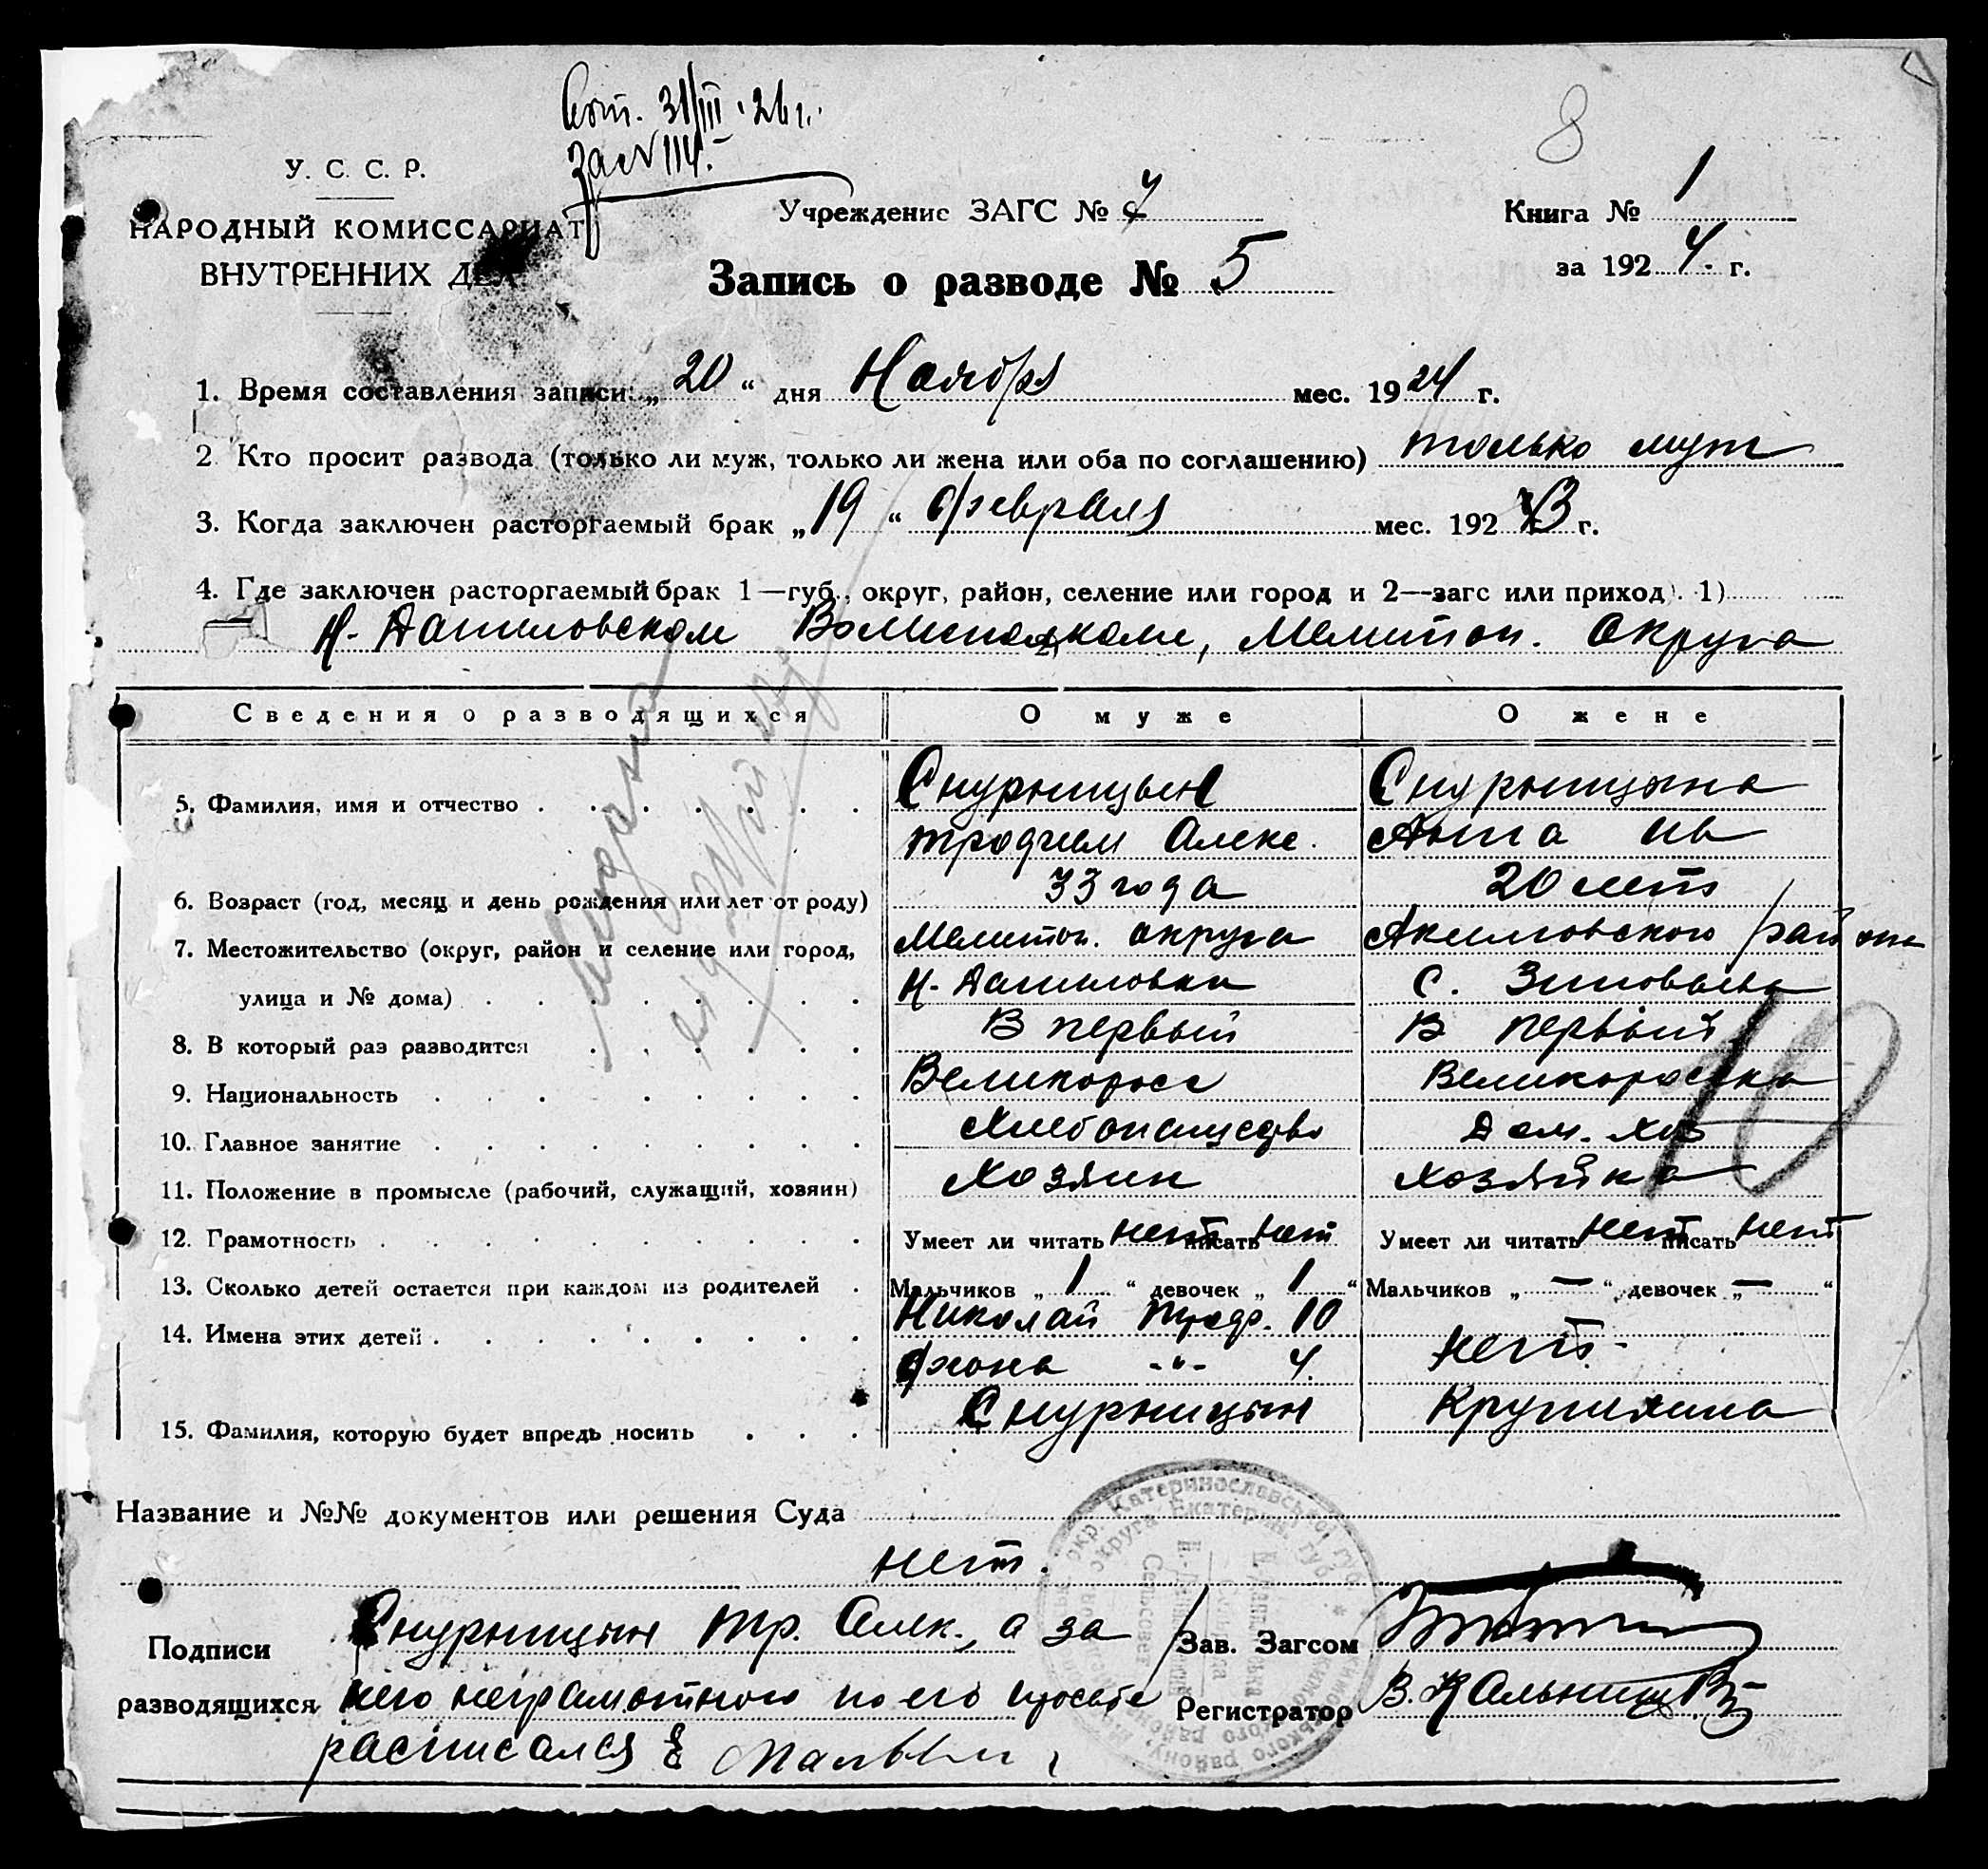 31/III 26 г.
за № 114.
8
У. С. С. Р.
НАРОДНЫЙ КОМИССАРИАТ
ВНУТРЕННИХ ДЕЛ
Учреждение ЗАГС №
Книга № 1
за 1924. г.
Запись о разводе № 5
1. Время составления записи: „20“ дня Ноября мес. 1924 г.
2. Кто просит развода (только ли муж, только ли жена или оба по соглашению) только муж
3. Когда заключен расторгаемый брак „19“ февраля мес. 1923 г.
4. Где заключен расторгаемый брак 1—губ., округ, район, селение или город и 2—загс или приход). 1)
Н. Даниловском Волисполкоме, Мелитоп. Округа
Сведения о разводящихся О муже О жене
5. Фамилия, имя и отчество Снурницын Снурницына
Трофим Алекс. Анна Ив
6. Возраст (год, месяц и день рождения или лет от роду) 33 года 20 летъ
7. Местожительство (округ, район и селение или город, Мелитоп. округа Акимовского района
улица и № дома) Н. Даниловки С. Зиновьева
8. В который раз разводится В первый В первый
9. Национальность Великоросс Великоросска
10. Главное занятие Хлебопашество Дом. хоз
11. Положение в промысле (рабочий, служащий, хозяин) Хозяин Хозяйка
10
12. Грамотность Умеет ли читать нет писать нет Умеет ли читать нет писать нет
13. Сколько детей остается при каждом из родителей Мальчиков „1“ девочек „1“ Мальчиков „—“ девочек „—“
14. Имена этих детей Николай Троф. 10 нет.
-"- 4.
15. Фамилия, которую будет впредь носить Снурницын
Название и №№ документов или решения Суда
нет.
Подписи Снурницын Тр. Алек., а за Зав. Загсом
разводящихся него неграмотного по его просьбе Регистратор В. Кальниц
расписался